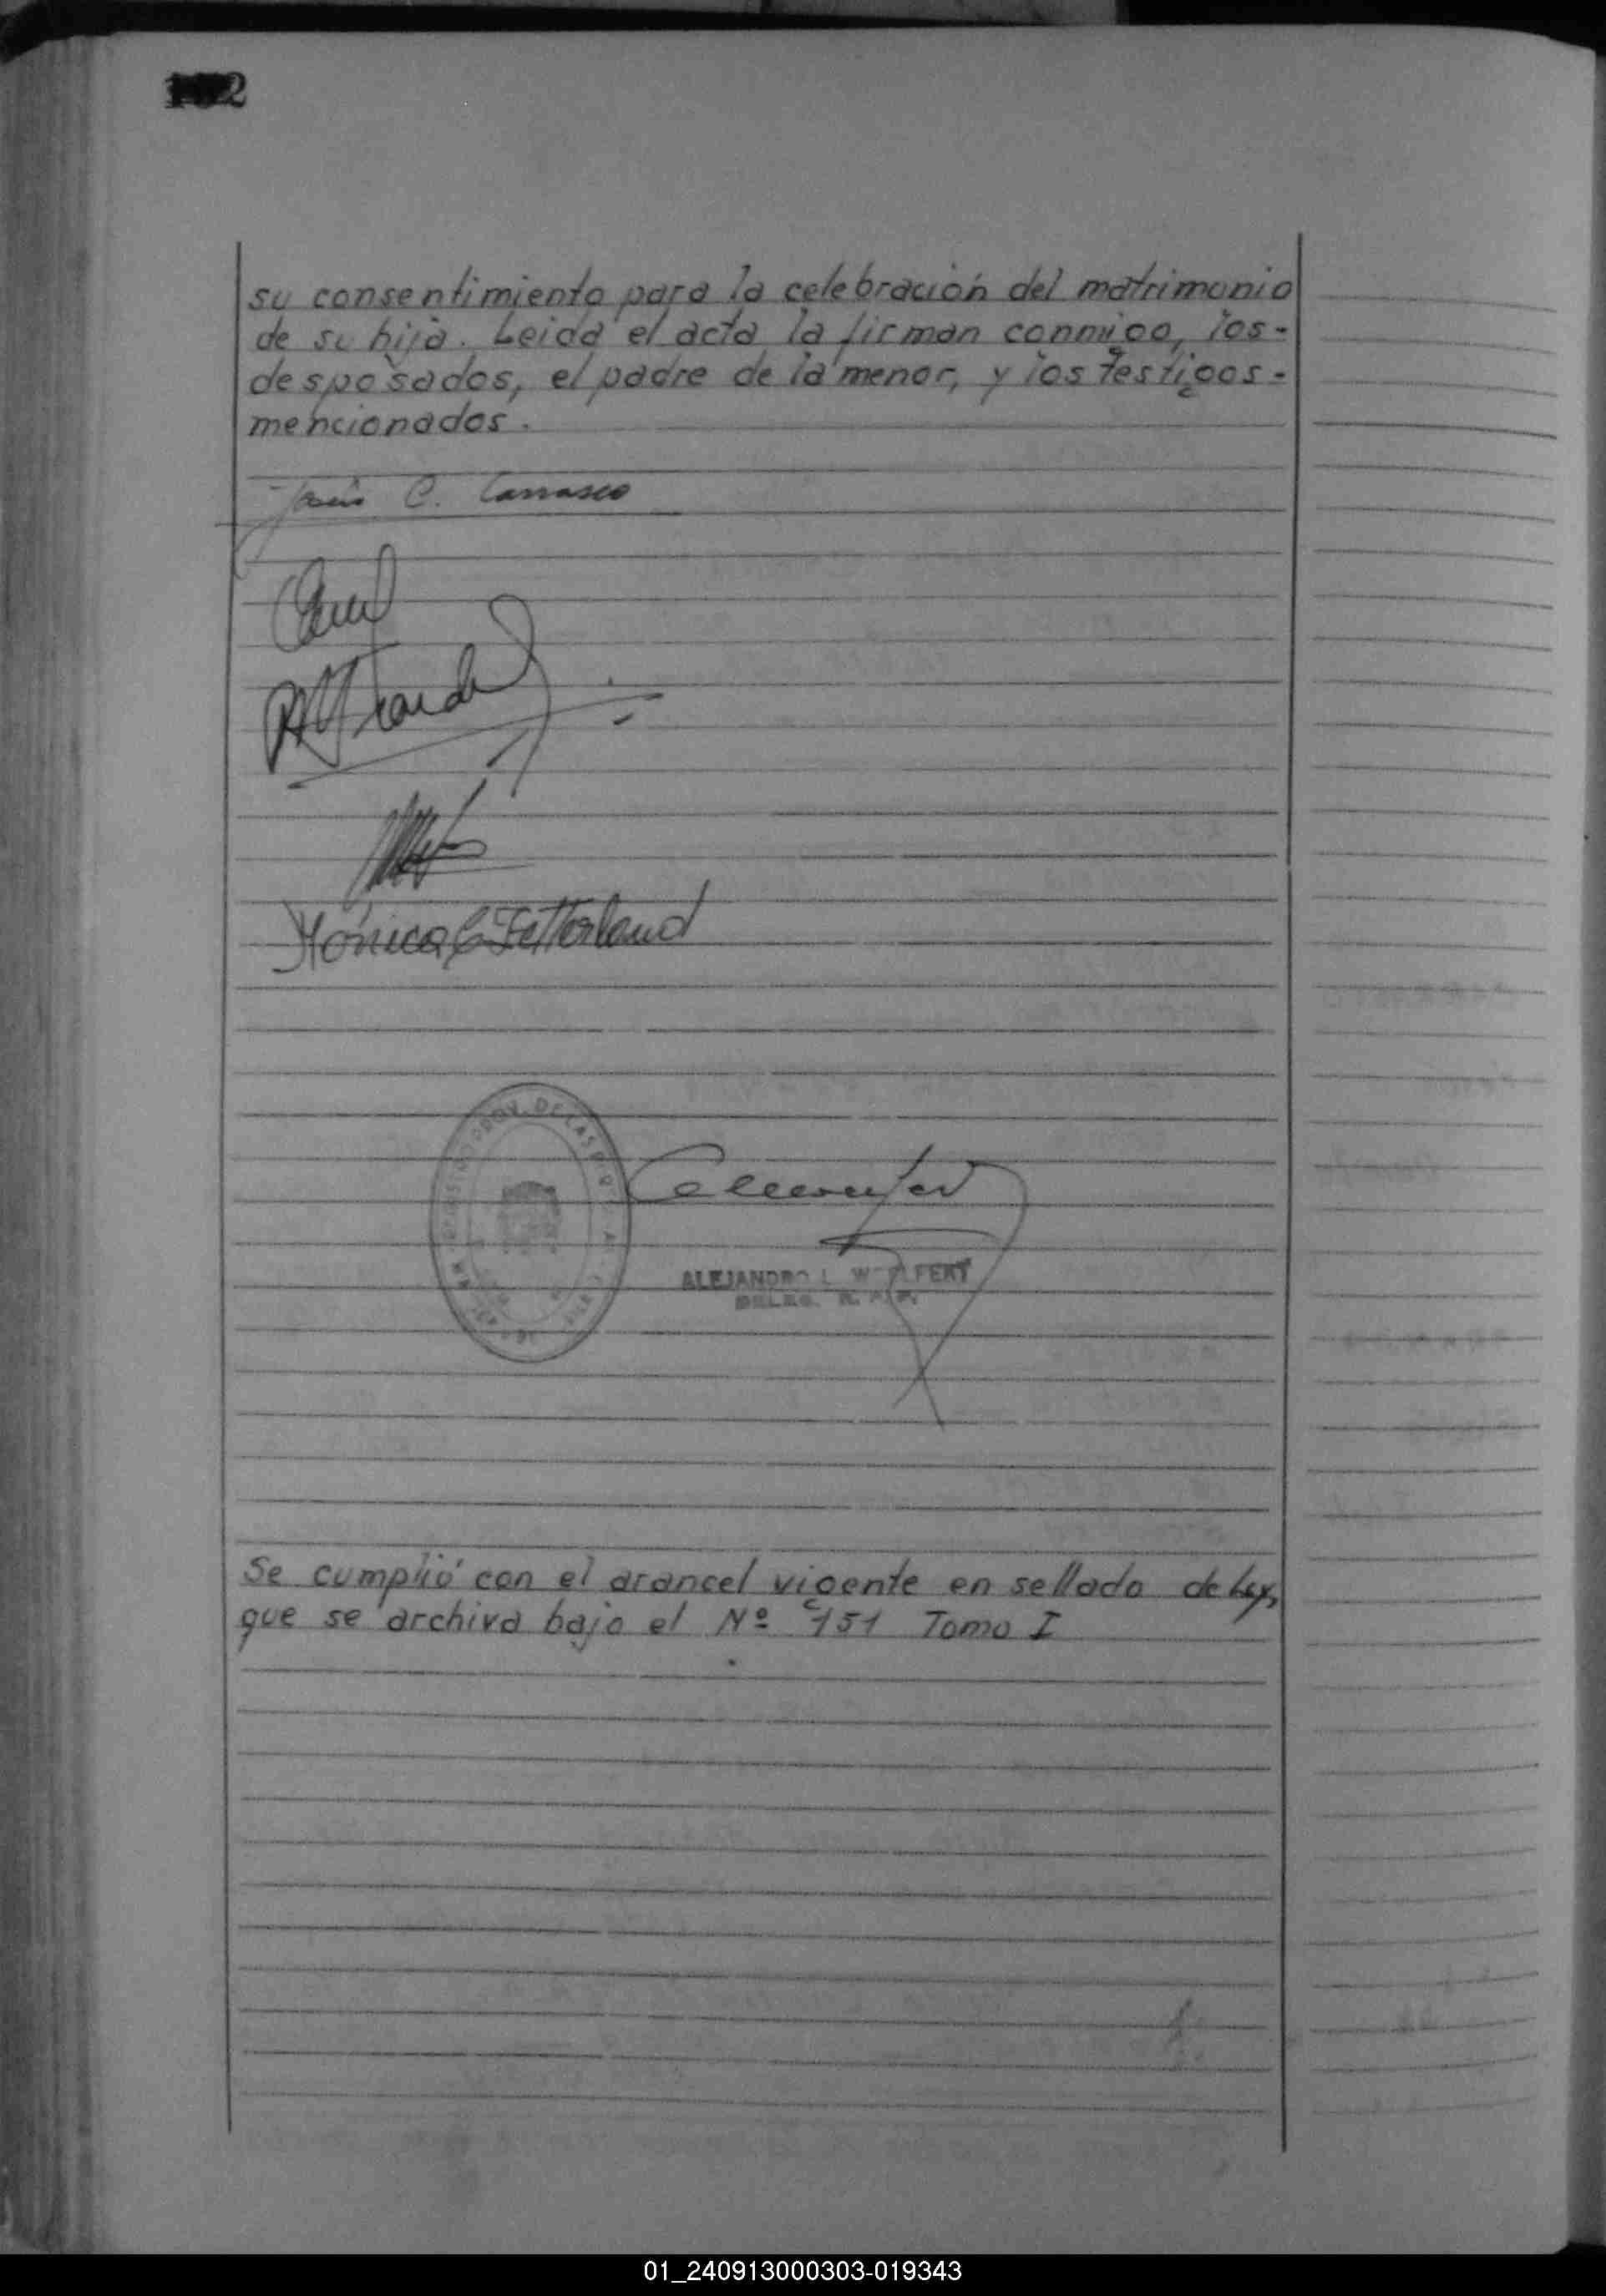 su consentimiento para la celebración del matrimonio
de su hija. Leida el acta la firman conmigo, los-
desposados, el padre de la menor, y los testigos-
mencionados.
C. Carrasco
Mónica Fetterland
DE LAS
ALEJANDRO L. W
DELEG. R.
Se cumplió con el arancel vigente en sellado de Ley,
que se archiva bajo el Nº 151 Tomo I
01_240913000303-019343